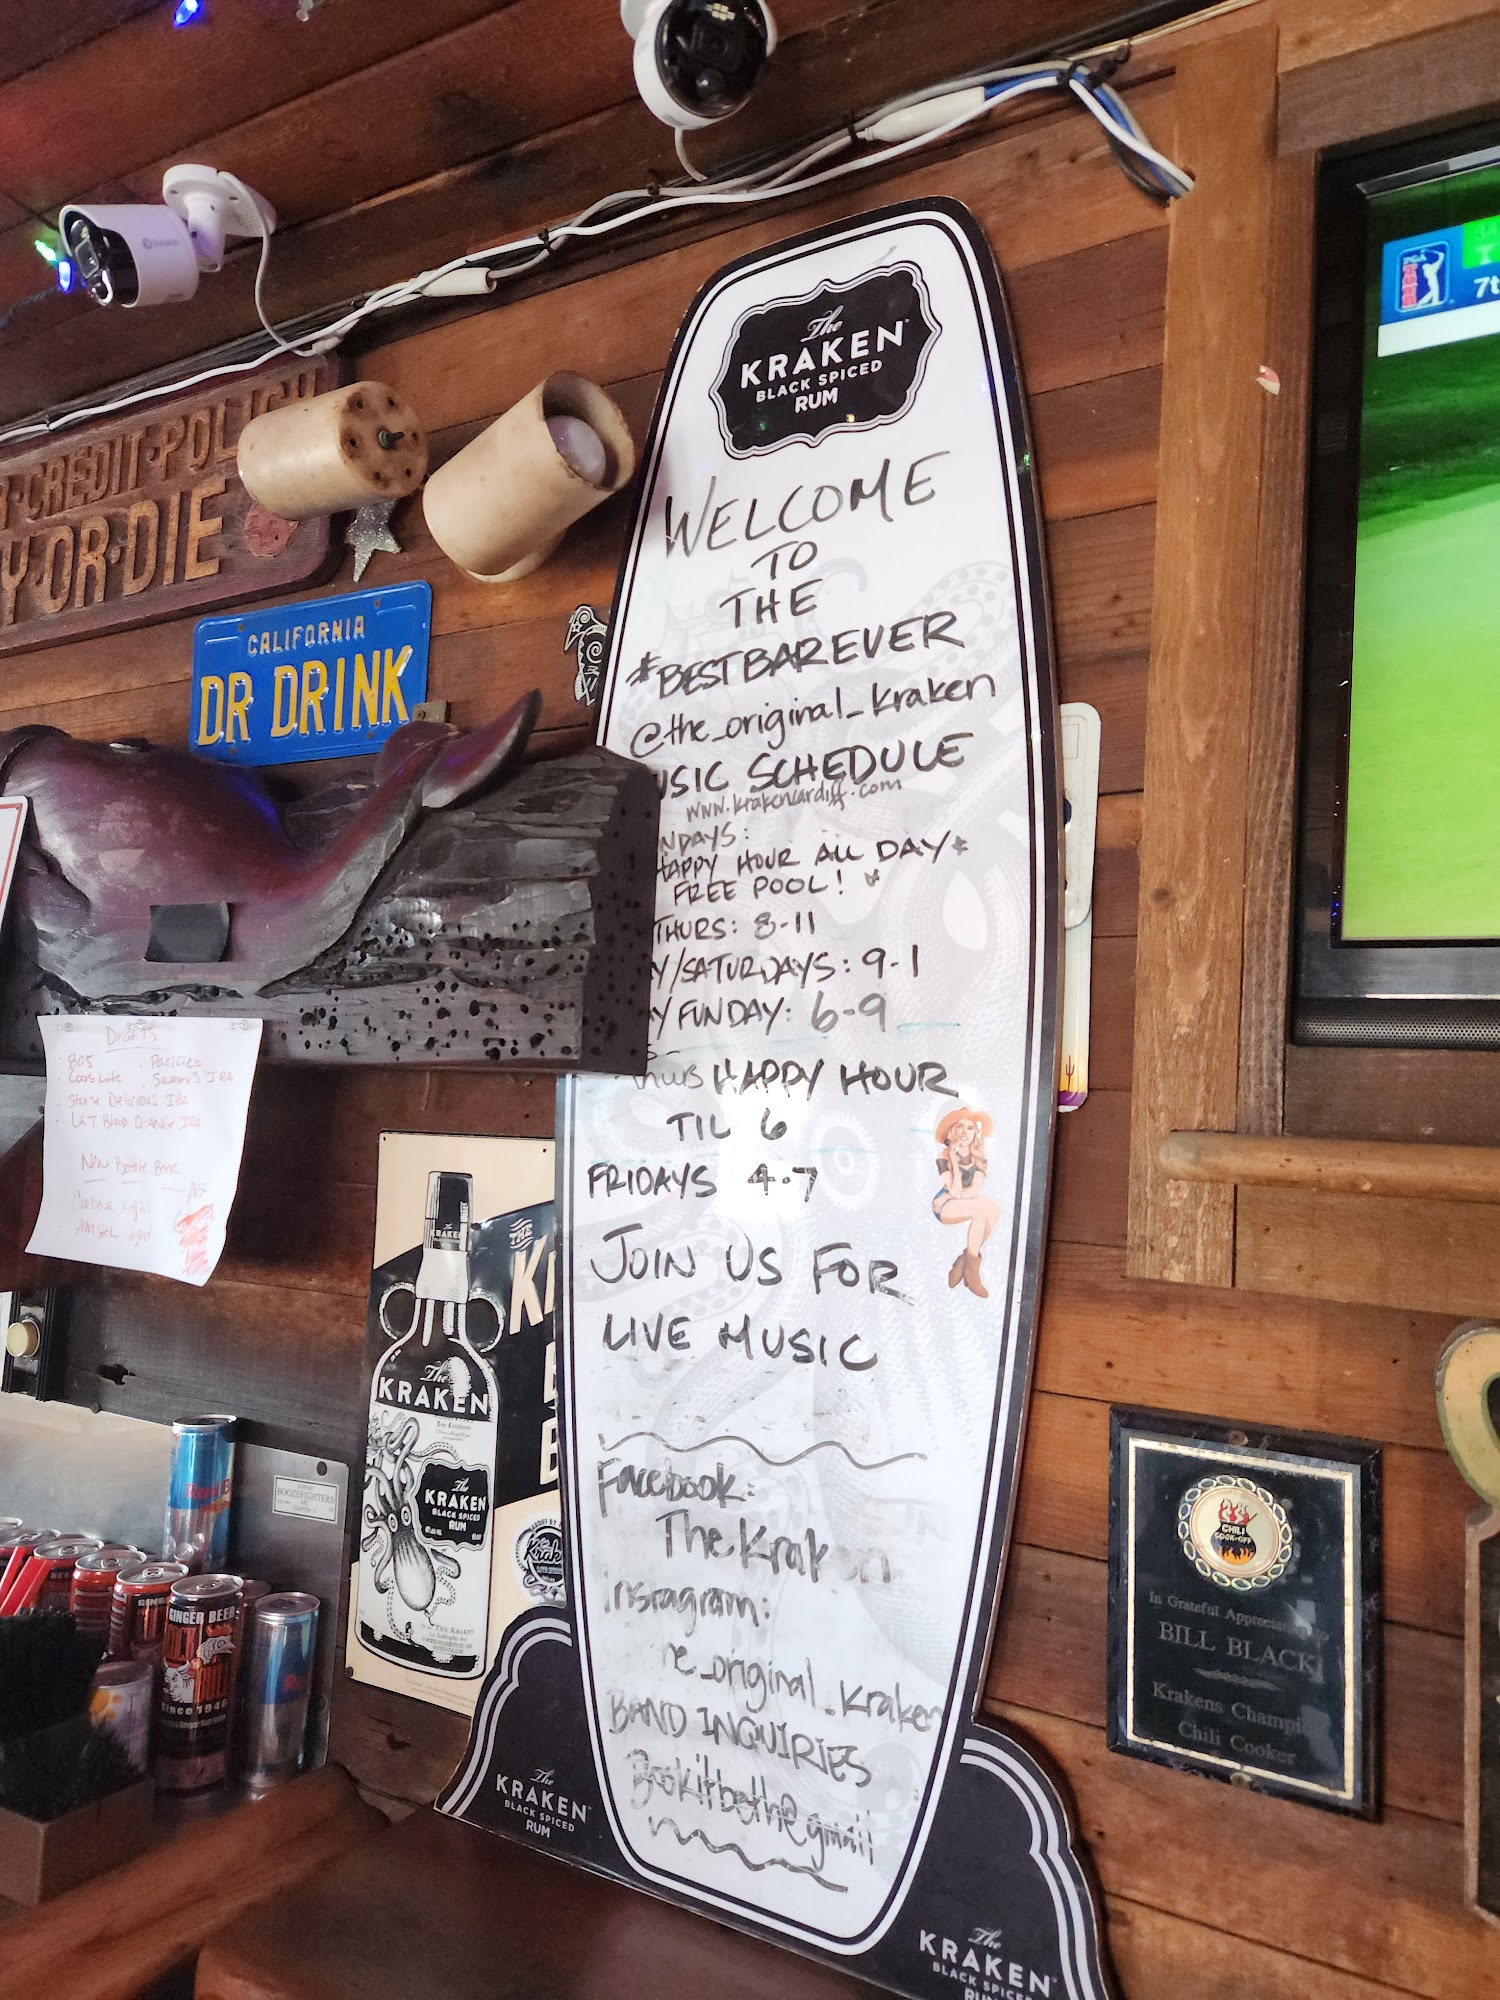 The
KRAKEN
BLACK SPICED
RUM
WELCOME
TO
THE
#BESTBAREVER
@the_original_kraken
USIC SCHEDULE
www.krakencardiff.com
NDAYS:
HAPPY HOUR ALL DAY*
FREE POOL!
THURS: 8-11
Y/SATURDAYS: 9-1
Y FUNDAY: 6-9
HAPPY HOUR
TIL 6
FRIDAYS 4-7
JOIN US FOR
LIVE MUSIC
Facebook:
The Kraken
insragram:
he_original_kraken
BAND INQUIRIES
@gmail
The
KRAKEN
BLACK SPICED
RUM
The
KRAKEN
BLACK SPICED
RUM
CREDIT·POLICY
Y·OR·DIE
CALIFORNIA
DR DRINK
Drafts
805 . Pacifico
Coors Lite
Stone Delicious IPA
Blood Orange IPA
New Bottle Beer
THE
KRAKEN
The
KRAKEN
The
KRAKEN
BLACK SPICED
RUM
THE KRAKEN
BOOZEFIGHTERS
GINGER BEER
Since 1946
PGA
TOUR
7t
CHILI
COOK-OFF
In Grateful Appreciation to
BILL BLACK
Krakens Champi
Chili Cooker